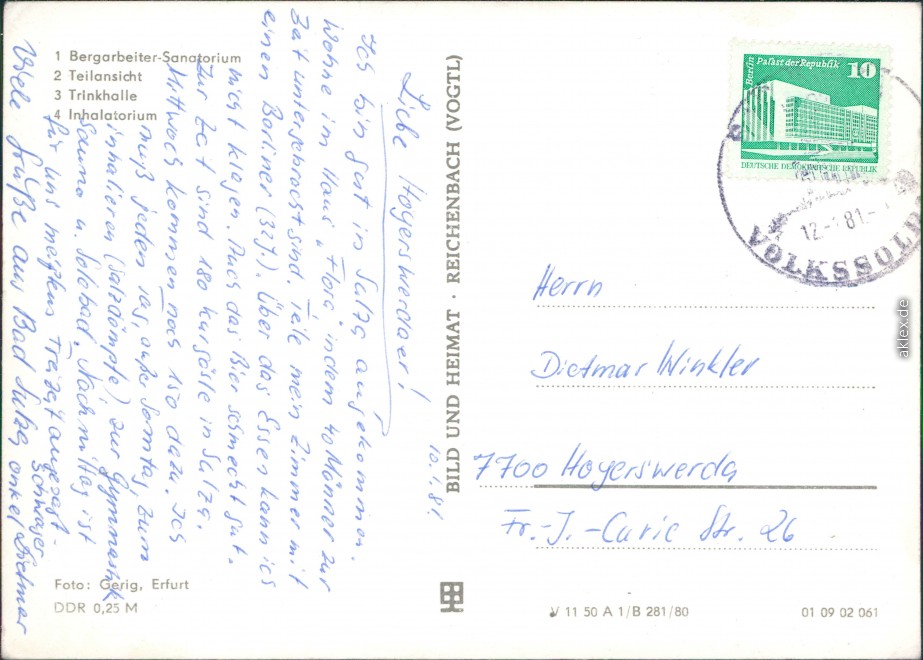 1 Bergarbeiter-Sanatorium
2 Teilansicht
3 Trinkhalle
4 Inhalatorium
10.1.81
Liebe Hoyerswerdaer!
Ich bin gut in Sulza angekommen.
Wohne in Haus „Flora" indem 40 Männer zur
Zeit untergebracht sind. Teile mein Zimmer mit
einen Berliner (32J.). Über das Essen kann ich
nicht klagen. Auch das Bier schmeckt gut.
Zur Zeit sind 180 kurgäste in Sulza.
Mittwoch kommen noch 150 dazu. Ich
muß jeden Tag, außer Sonntag, zum
inhalieren (Salzdämpfe), zur Gymnastik
Sauna u. Solebad. Nachmittag ist
für uns Freizeit angesagt.
Viele Grüße aus Bad Sulza, onkel Dietmar
Schwager
Foto: Gerig, Erfurt
DDR 0,25 M
BILD UND HEIMAT · REICHENBACH (VOGTL)
Berlin Palast der Republik 10
DEUTSCHE DEMOKRATISCHE REPUBLIK
12.- 81.-
VOLKSSOL
Herrn
Dietmar Winkler
7700 Hoyerswerda
Fr.-J.-Curie Str. 26
V 11 50 A 1/B 281/80
01 09 02 061
aklex.de